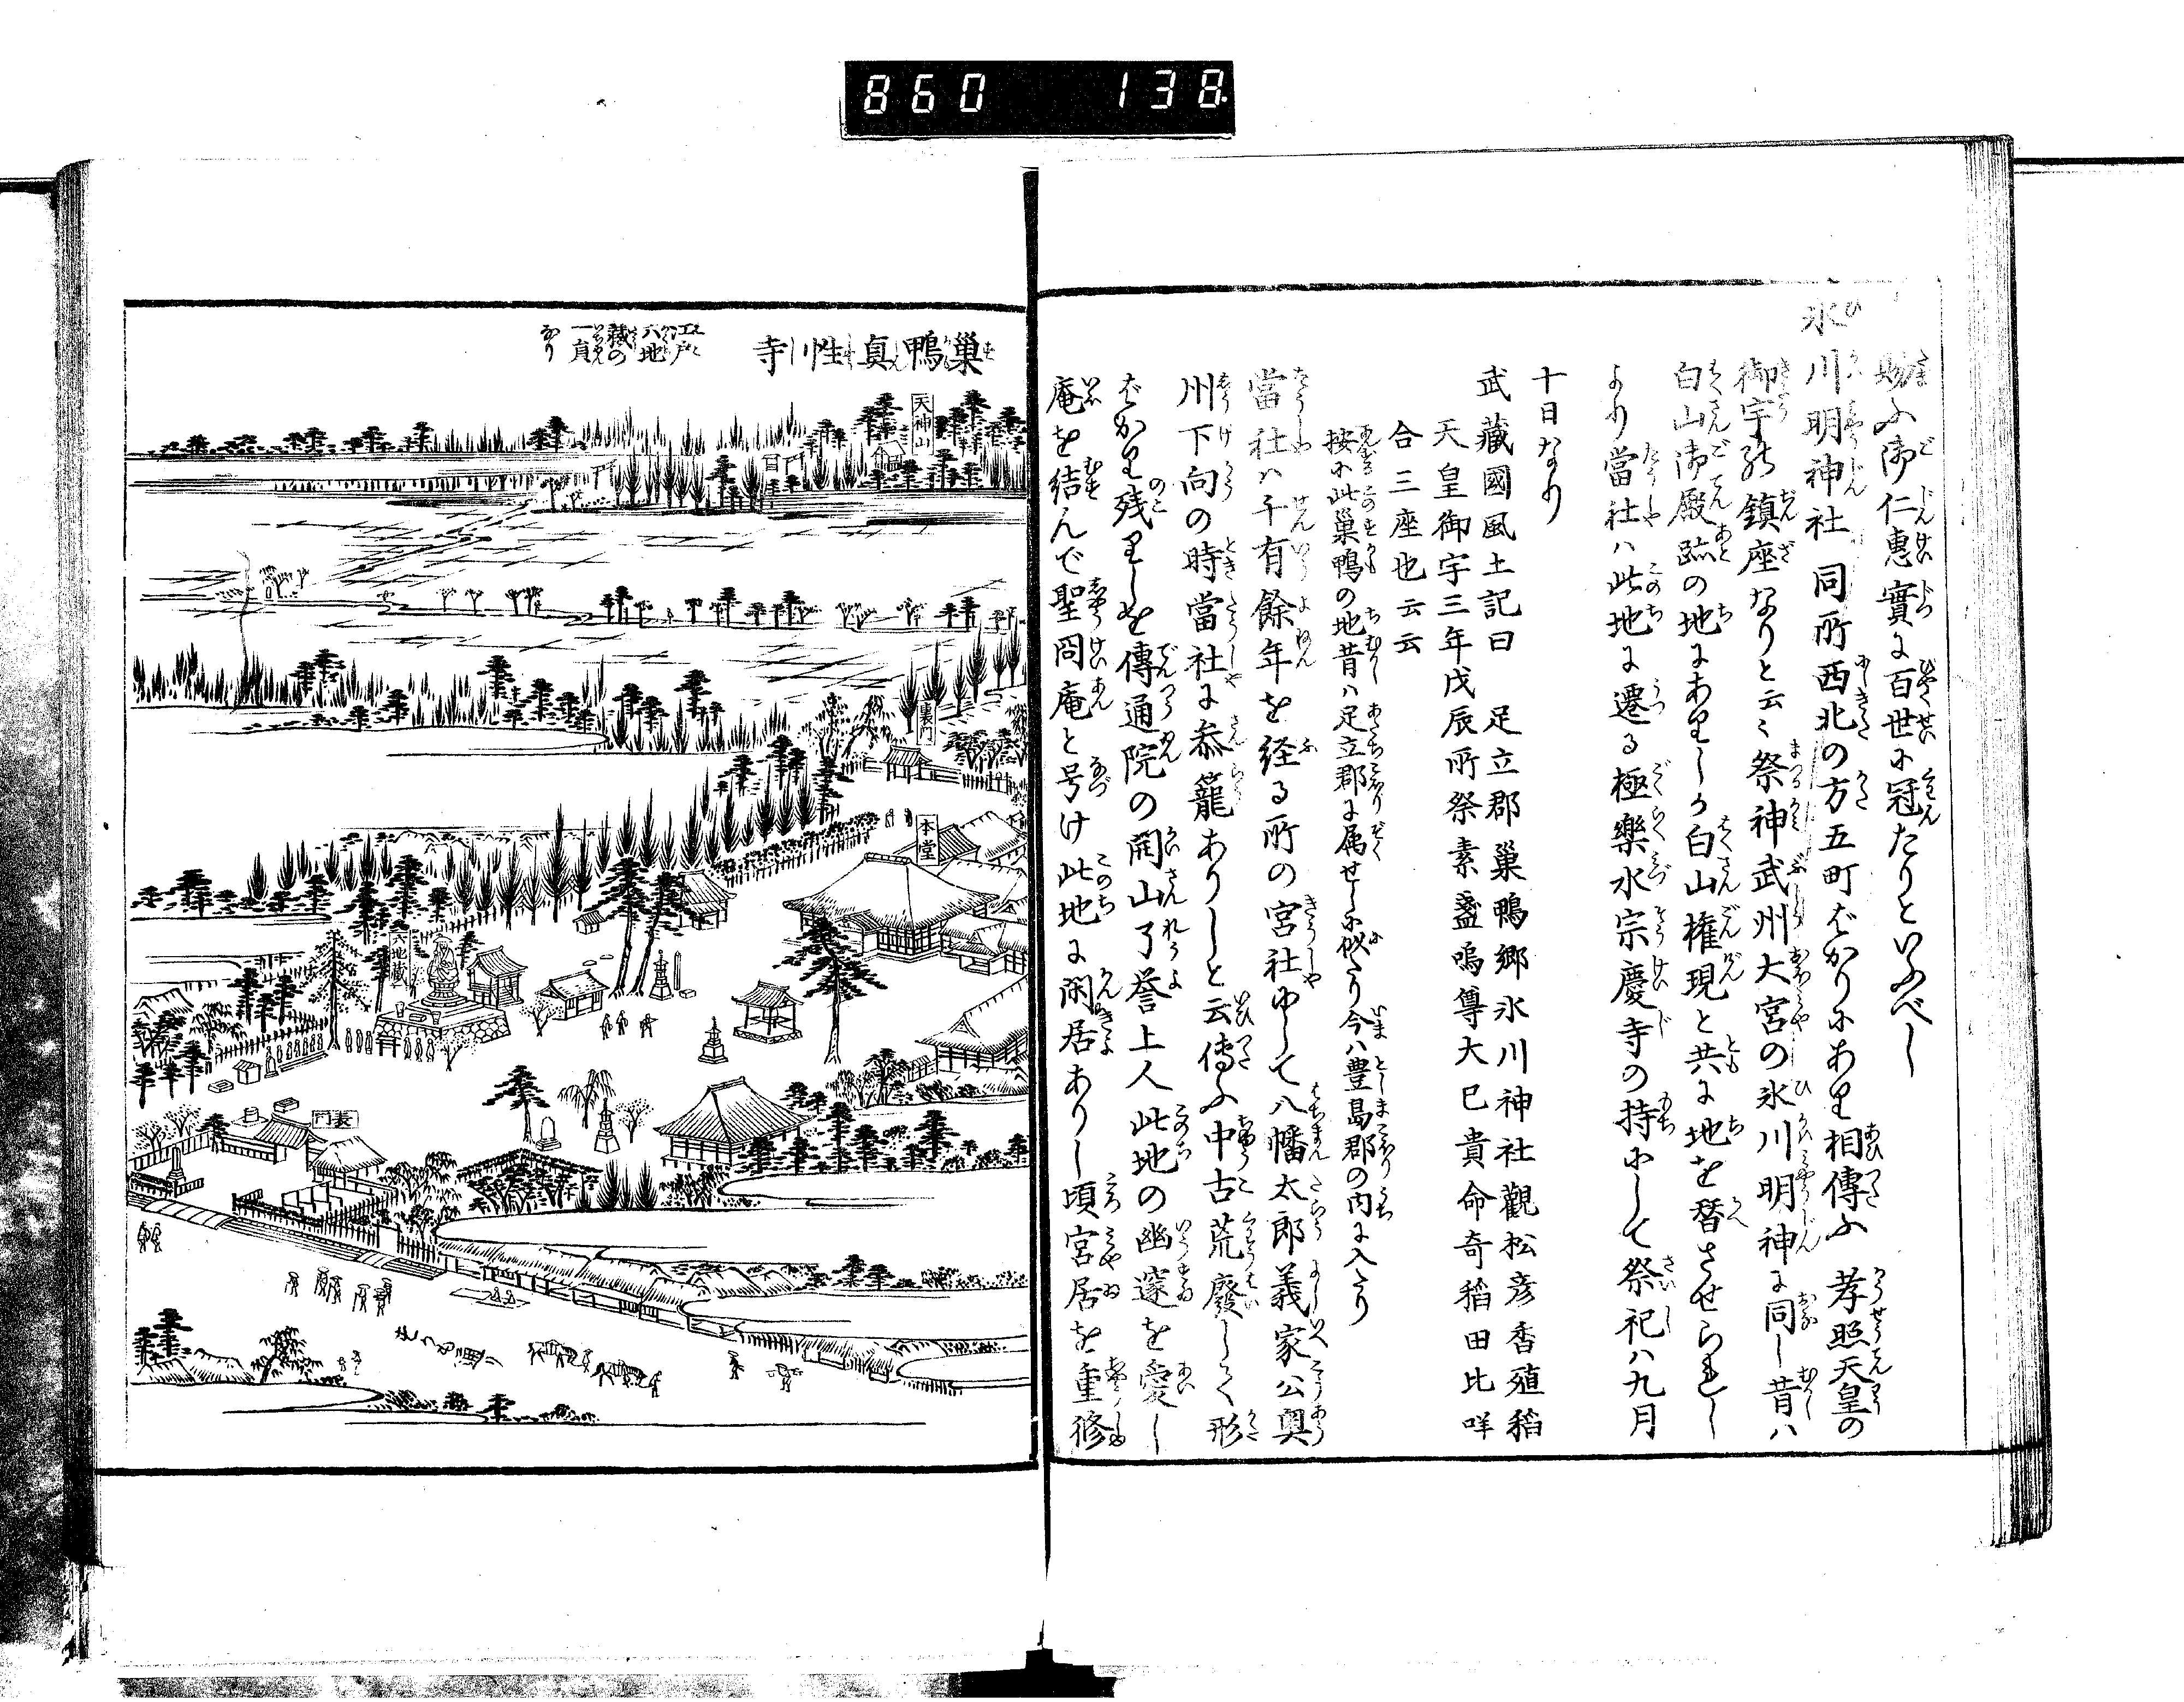 860 138
賜ふ御仁惠實に百世に冠たりといふべし
氷川明神社 同所西北の方五町ばかりにあり相傳ふ 孝照天皇の
御宇の鎮座なりと云々祭神武州大宮の氷川明神に同し昔ハ
白山御殿跡の地にありしか白山権現と共に地を替させられし
より當社ハ此地に遷る極樂水宗慶寺の持にして祭祀ハ九月
十日なり
武藏國風土記曰 足立郡巢鴨郷氷川神社觀松彦香殖稲
天皇御宇三年戊辰所祭素盞嗚尊大巳貴命奇稲田比咩
合三座也云云
按に此巢鴨の地昔ハ足立郡に属せしに似たり今ハ豊島郡の内に入たり
當社ハ千有餘年を経る所の宮社にして八幡太郎義家公奥
州下向の時當社に叅籠ありしと云傳ふ中古荒廢して形
ばかり残りしを傳通院の開山了誉上人此地の幽邃を愛し
庵を結んで聖冏庵と号け此地に閑居ありし頃宮居を重修
巢鴨真性寺
江戸
六地
蔵の
一員
なり
天神山
裏門
本堂
六地蔵
表門